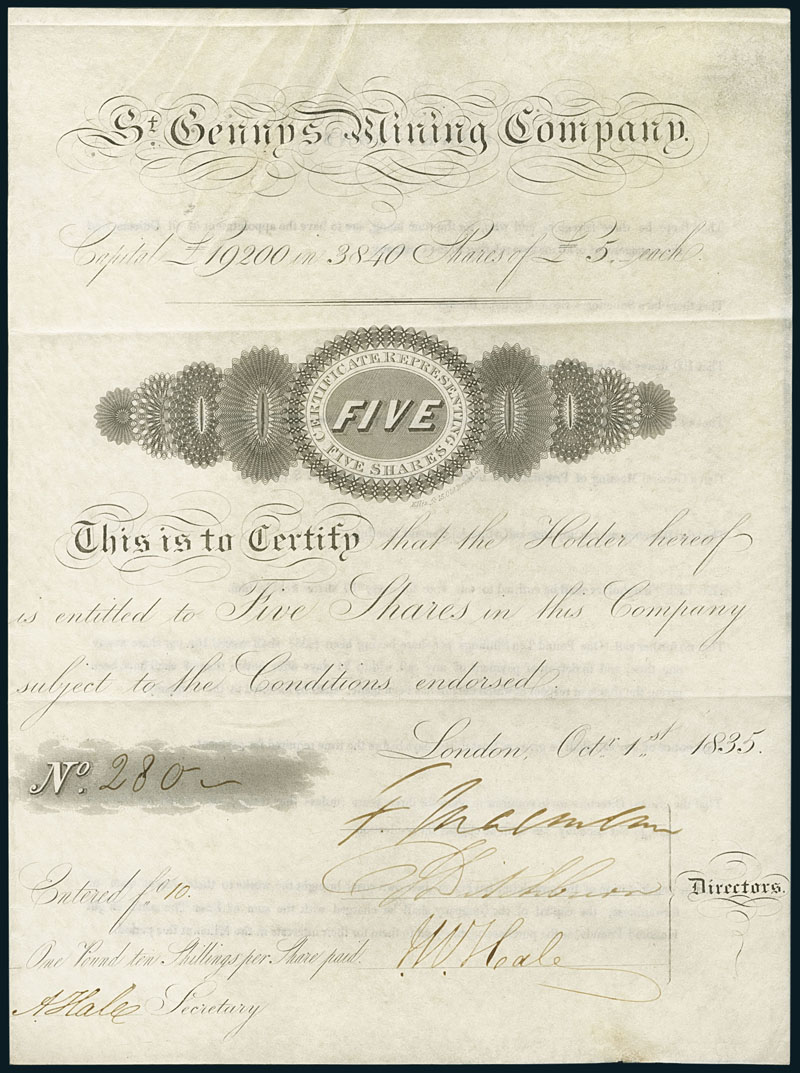 St. Gennys Mining Company.
Capital £19200 in 3840 Shares of £5. each.
CERTIFICATE REPRESENTING
FIVE
FIVE SHARES
This is to Certify that the Holder hereof
is entitled to Five Shares in this Company
subject to the Conditions endorsed
London, Octr. 1st. 1835.
No. 280
F.
Ditchburn
Directors.
Entered fo. 10.
One Pound ten Shillings per Share paid.
W Hale
A Hale Secretary